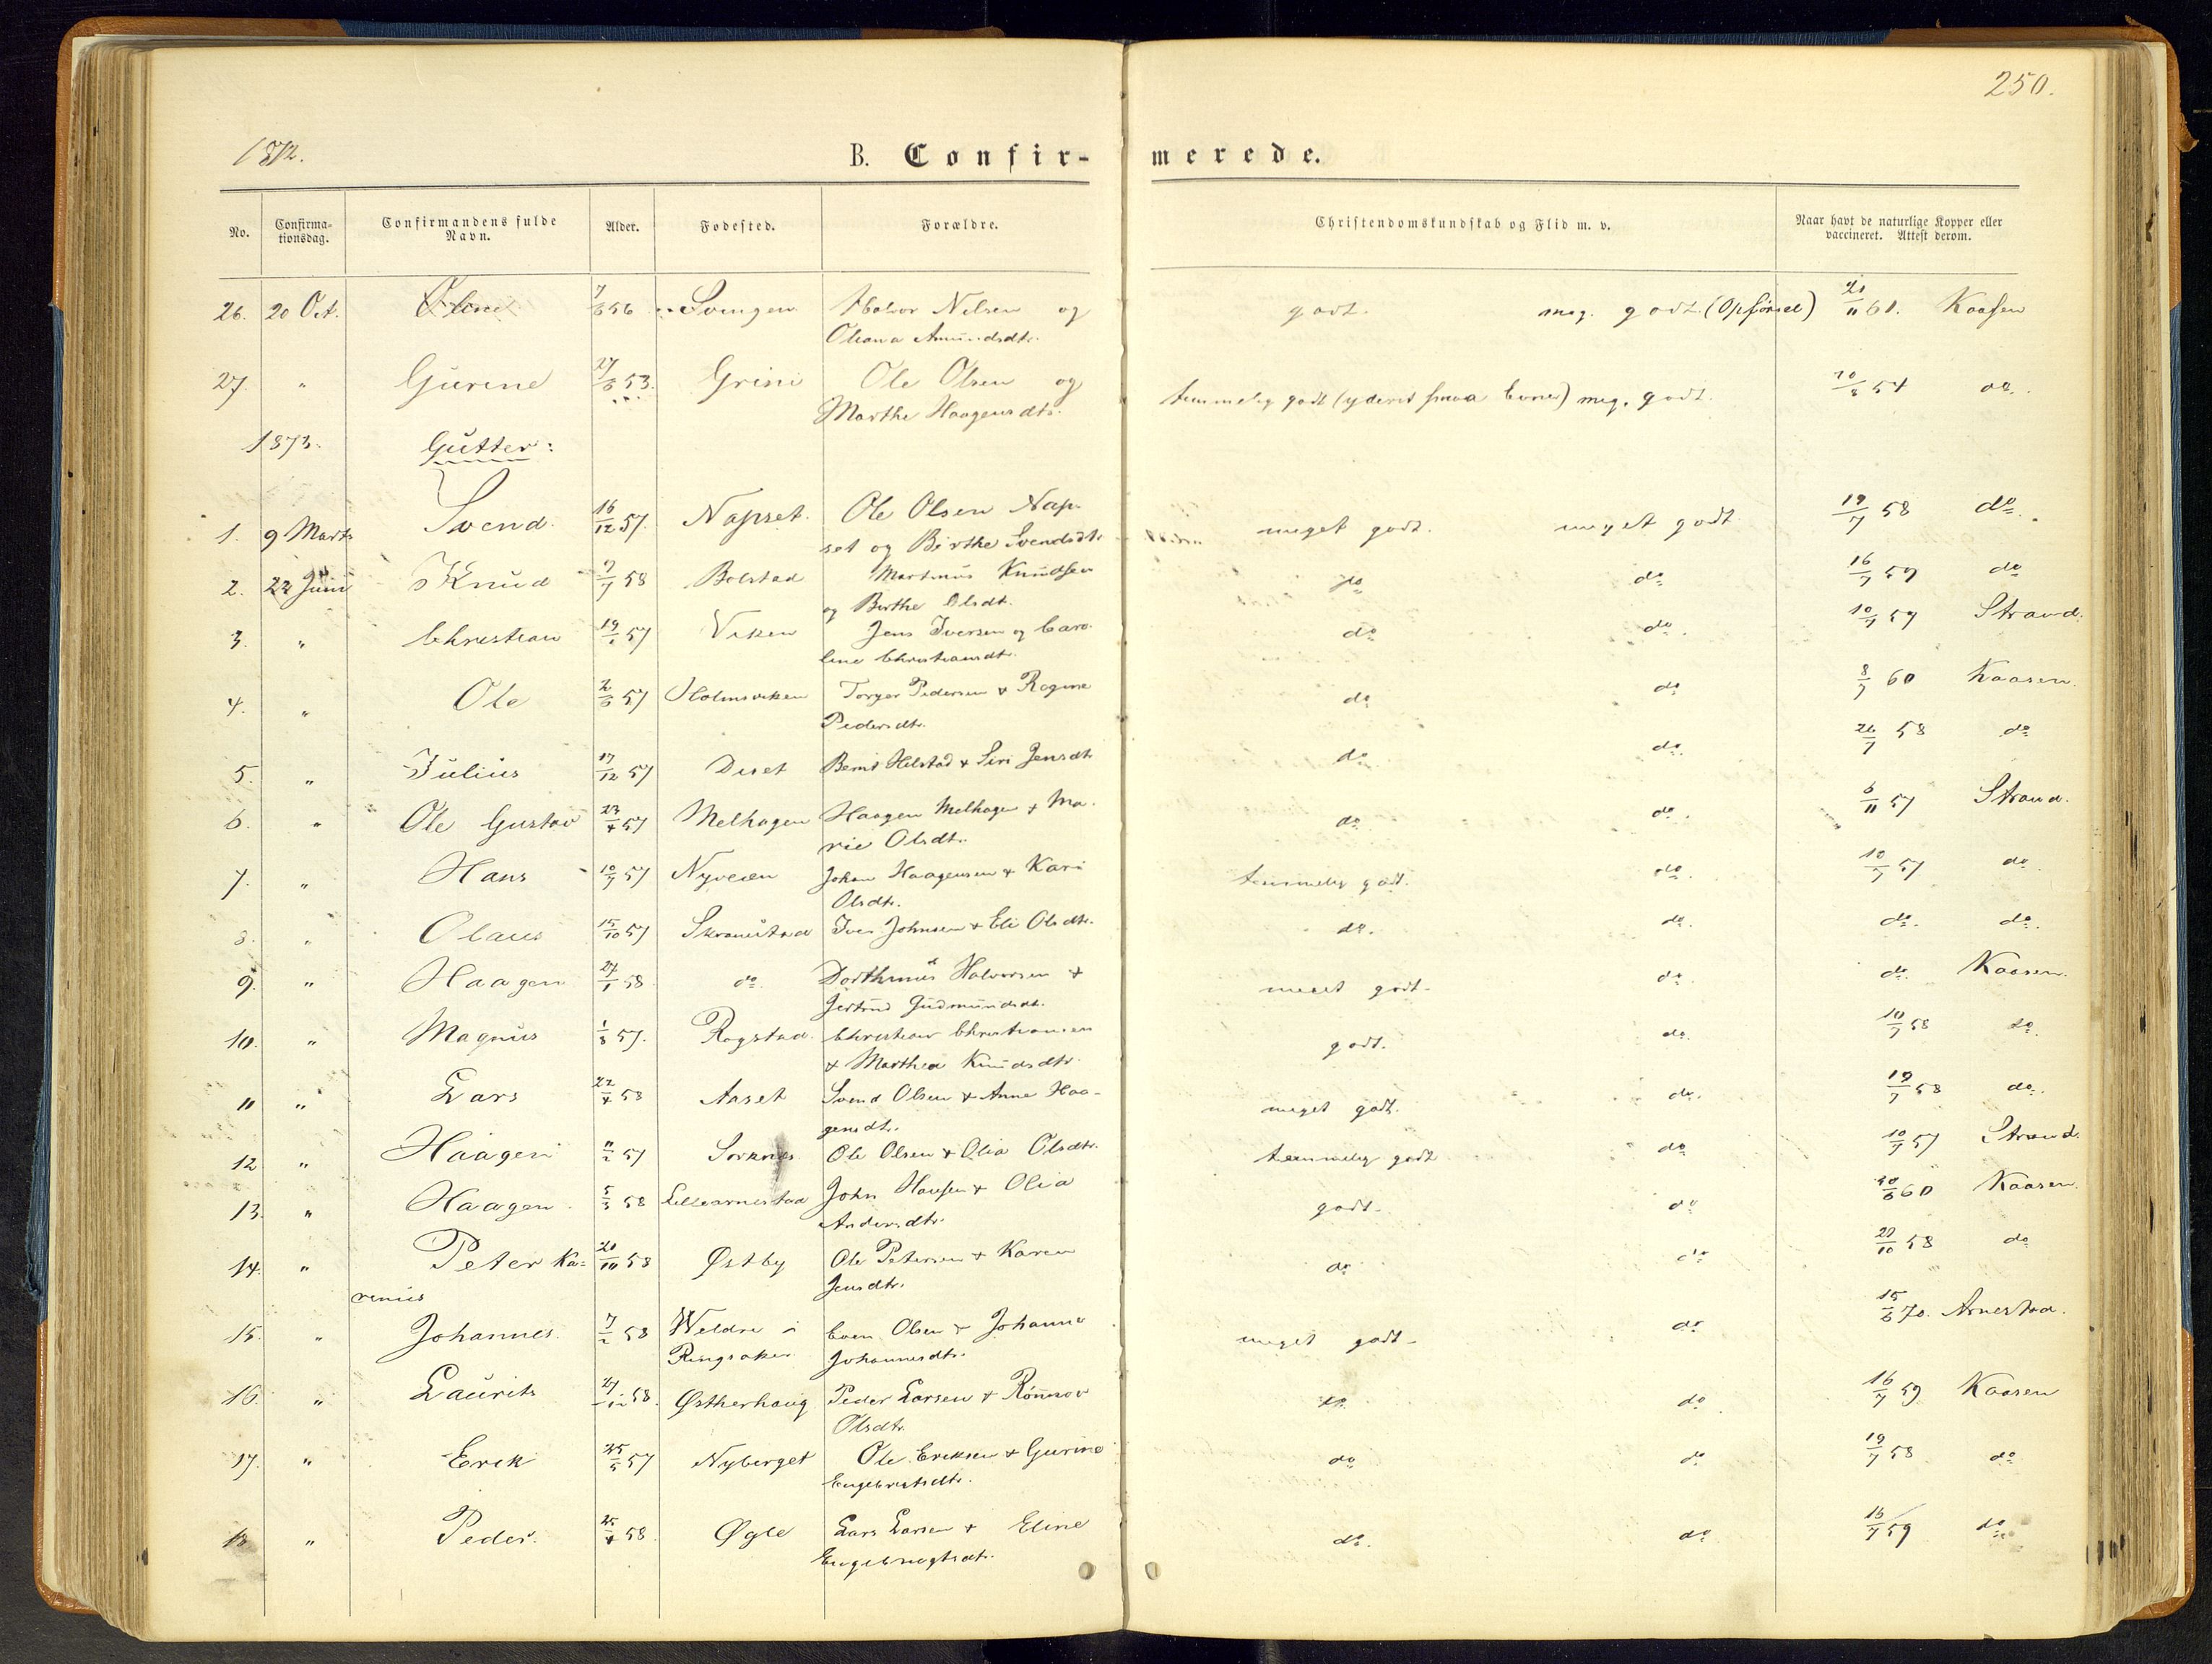 250.
1872.
B. Confir- merede.
No. Confirma- tionsdag. Confirmandens fulde Navn. Alder. Fødested. Forældre. Christendomskundskab og Flid m. v. Naar havt de naturlige Kopper eller vaccineret. Attest derom.
26. 20 Oct. Oline 7/6 56 Svingen Halvor Nilsen og godt. meg. godt. (Opførsel) 21/11 61. Kaasen
Oleana Amundsdtr.
27. " Gurine 27/6 53. Grini Ole Olsen og temmelig godt (yderst smaa Evner) meg. godt. 20/8 54 do.
Marthe Haagensdtr.
1873. Gutter:
1. 9 Marts Svend 16/12 57. Napset. Ole Olsen Nap- meget godt. meget godt 19/7 58 do.
set og Birthe Svendsdtr.
2. 22 Juni Knud 7/7 58 Bolstad Martinus Knudsen do do 16/7 59 do
og Birthe Olsdt.
3. " Christian 19/1 57 Viken Jens Iversen og Caro- do do. 10/7 57 Strand.
line Christiansdtr.
4. " Ole 2/6 57 Holmsviken Torger Pedersen & Ragine do do 8/7 60 Kaasen.
Pedersdtr.
5. " Julius 17/12 57 Diset Bernt Helstad & Siri Jensdtr. do. do. 26/7 58 do
6. " Ole Gustav 23/4 57 Melhagen Haagen Melhagen & Ma- do. do. 6/11 57 Strand.
rie Olsdtr.
7. " Hans 10/7 57 Nyveien Johan Haagensen & Kari temmelig godt. do. 10/7 57 do.
Olsdtr.
8. " Olaus 15/10 57 Skramstad Iver Johnsen & Eli Olsdtr. do. do. do. do.
9. " Haagen 27/1 58 do. Dorthinus Halvorsen & meget godt. do. do. Kaasen.
Jertrud Gudmundsdt.
10. " Magnus 1/8 57. Rogstad. Christian Christiansen godt. do. 10/7 58 do.
& Marthea Knudsdtr.
11 " Lars 22/4 58 Aaset Svend Olsen & Anne Haa- meget godt. do. 19/7 58 do.
gensdtr.
12 " Haagen 11/2 57 Sorknes. Ole Olsen & Olia Olsdtr. temmelig godt do 10/7 57 Strand.
13. " Haagen 5/3 58 Lillearnestad John Hansen & Olia godt. do 20/6 60 Kaasen.
Andersdtr.
14. " Peter Ka- 20/10 58 Østby Ole Petersen & Karen do. do 27/10 58 do
renius Jensdtr.
15. " Johannes. 7/2 58 Weldre i Even Olsen & Johanne meget godt. do 15/6 70. Arnestad.
Ringsaker Johannesdtr.
16. " Laurits 27/12 58. Østherhaug Peder Larsen & Rønnov do. do 16/7 59 Kaasen
Olsdtr.
17. " Erik 25/5 57 Nyberget Ole Eriksen & Gurine do do 19/7 58 do
Engebretsdtr.
18 " Peder. 25/4 58. Øgle Lars Larsen & Eline do. do 16/7 59 do
Engebregtsdtr.